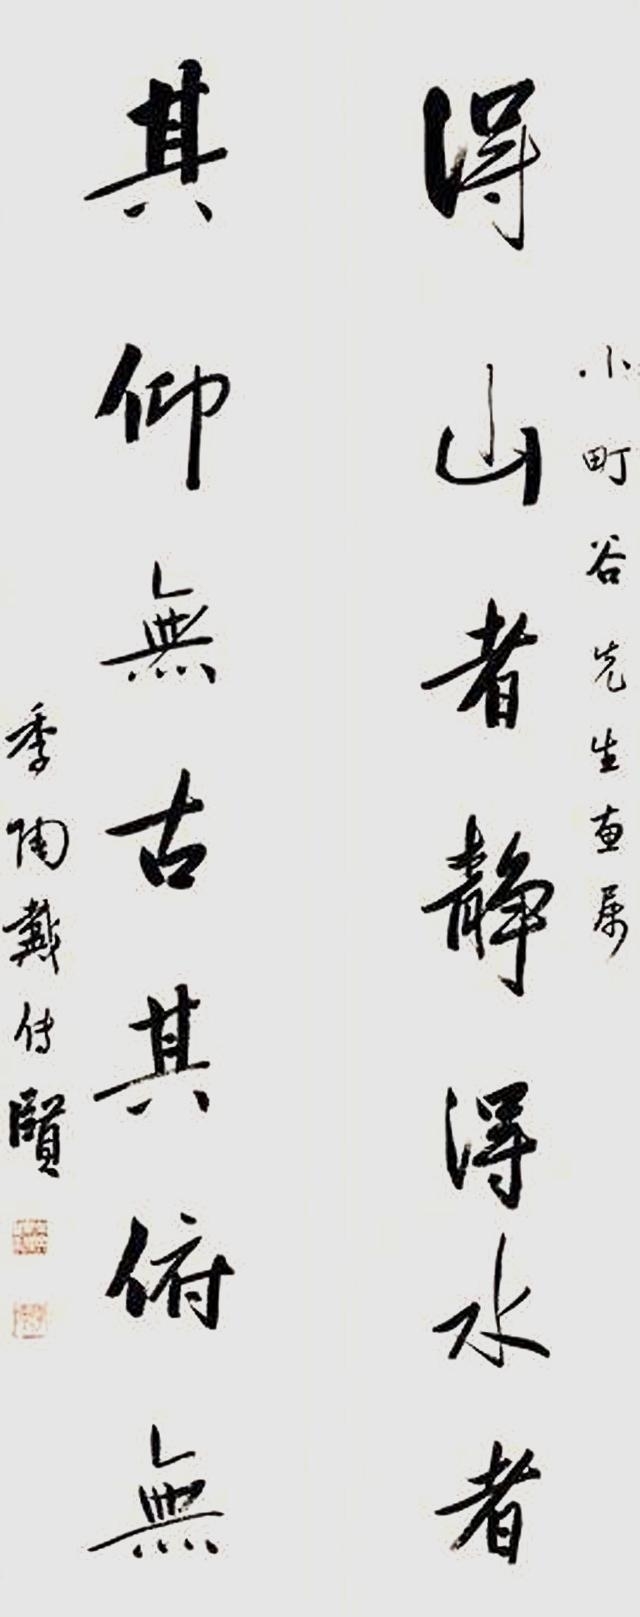 小町谷先生直属
得山者静得水者
其仰無古其俯無
季陶戴传賢